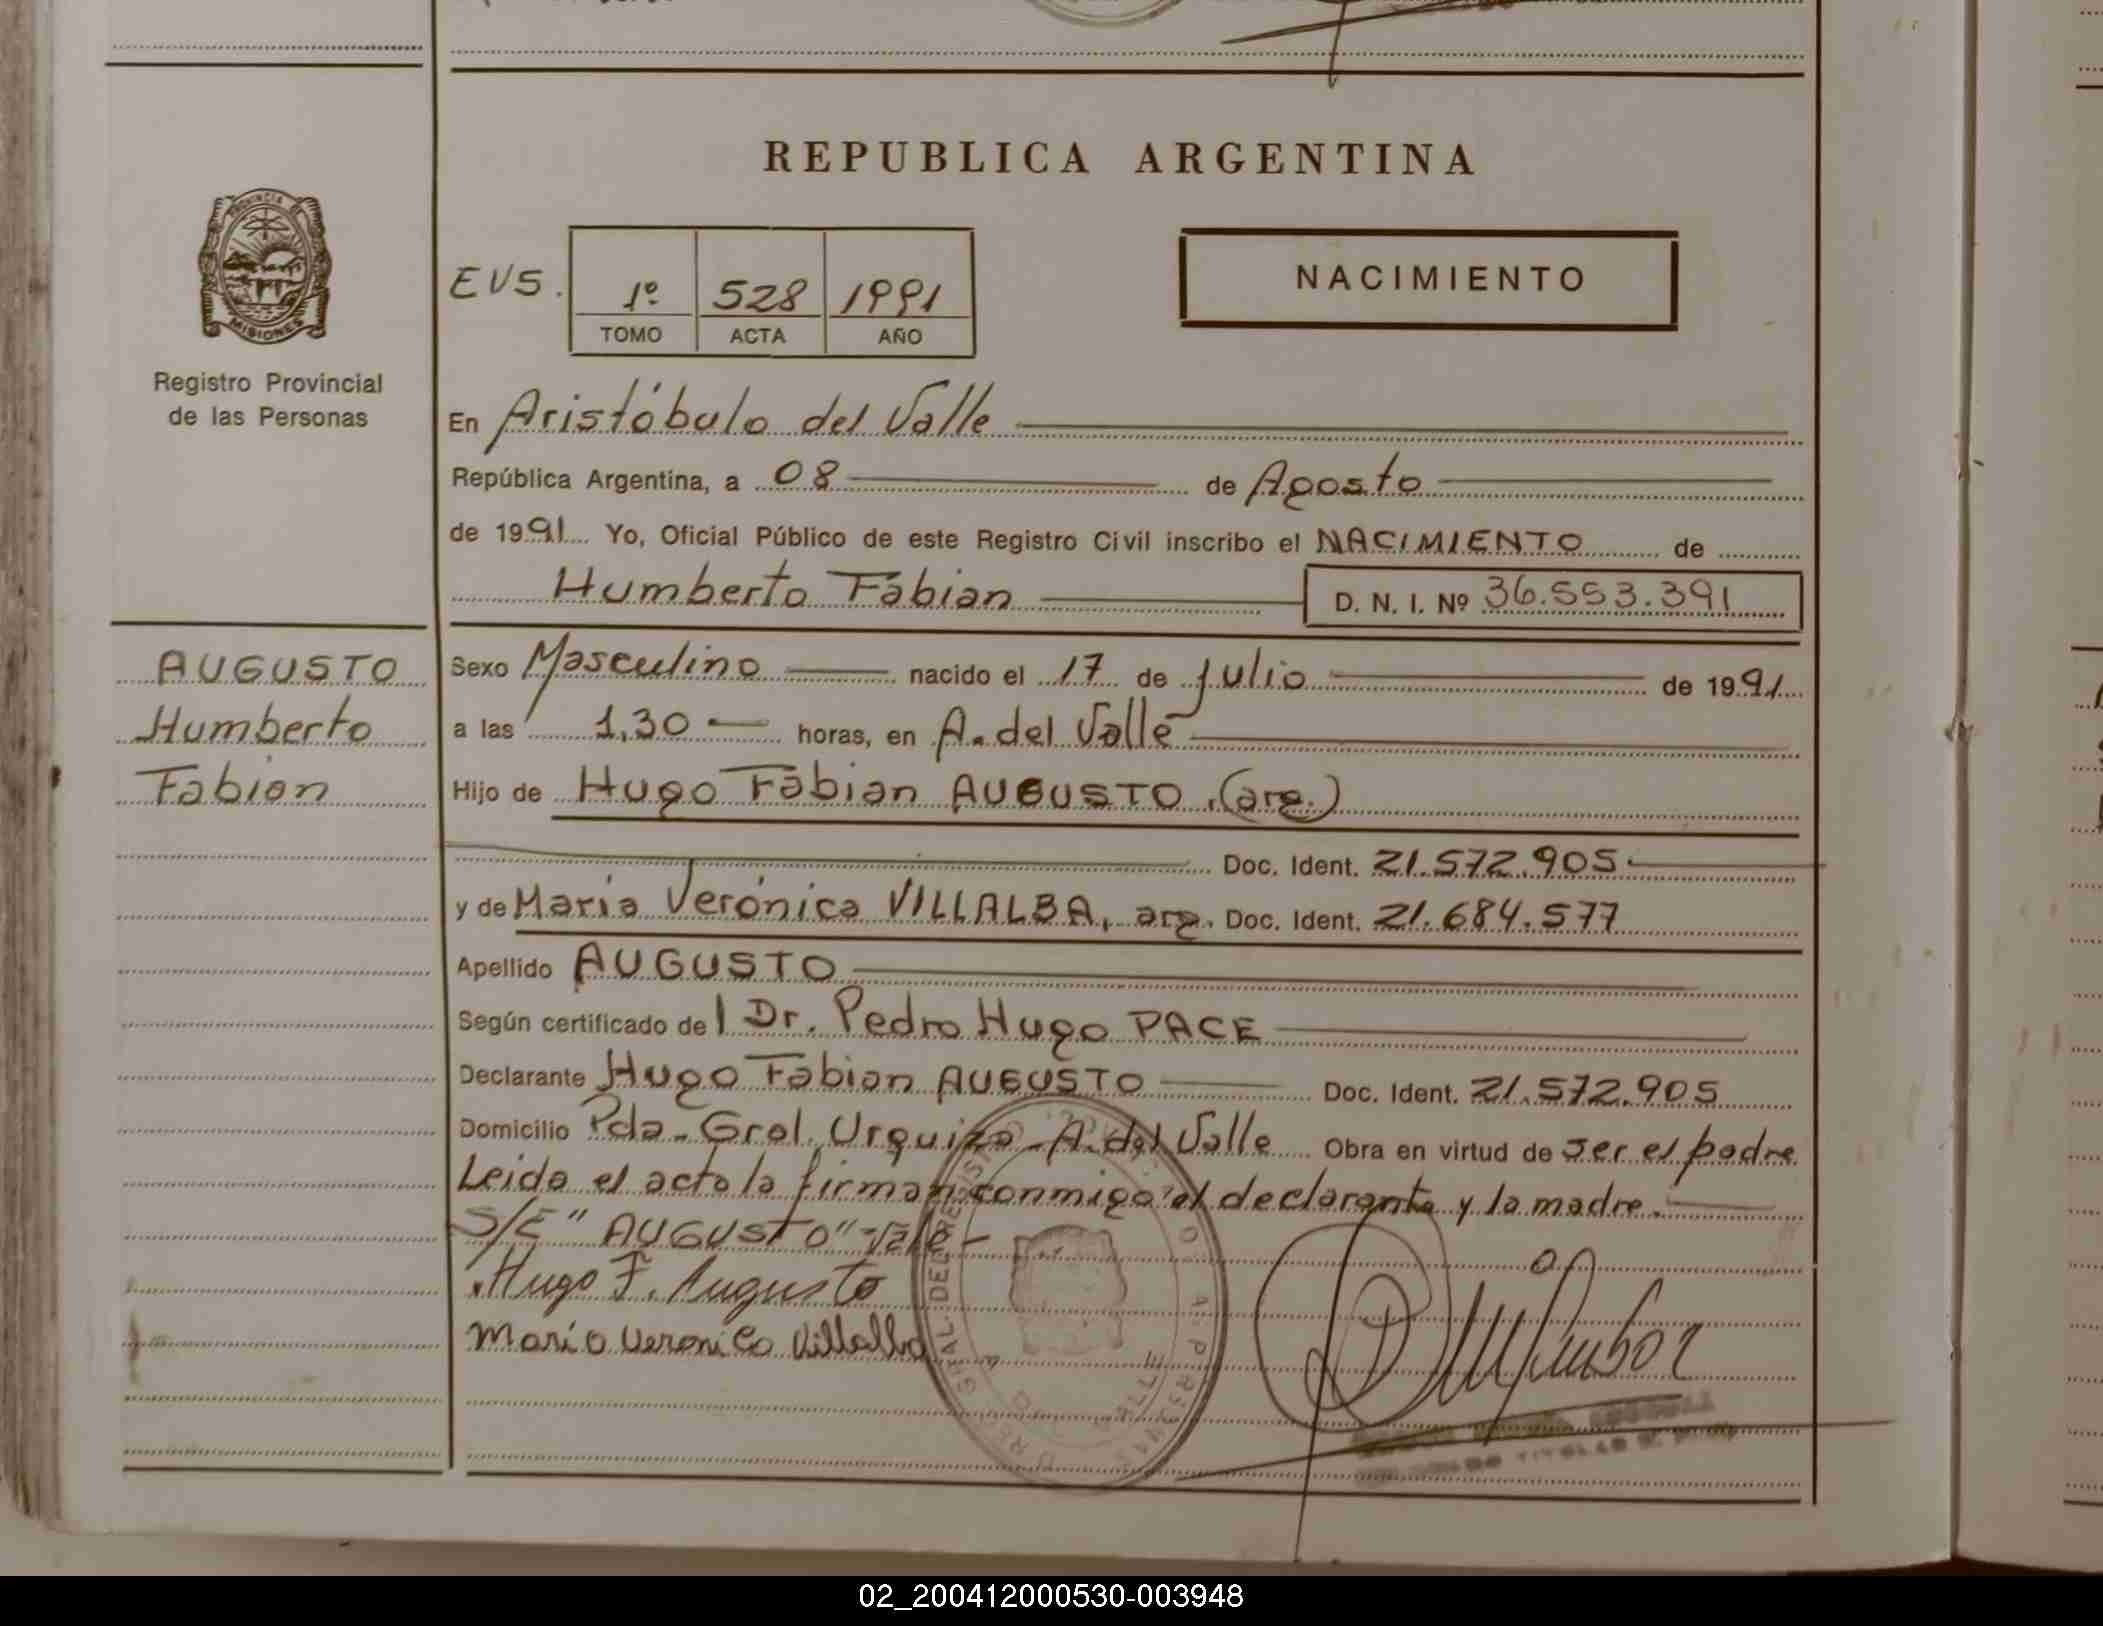 REPUBLICA ARGENTINA
PROVINCIA DE
MISIONES
Registro Provincial
de las Personas
EVS.
1º 528 1991
TOMO ACTA AÑO
NACIMIENTO
En Aristóbulo del Valle
República Argentina, a 08 de Agosto
de 1991 Yo, Oficial Público de este Registro Civil inscribo el NACIMIENTO de
Humberto Fabian D. N. I. Nº 36.553.391
AUGUSTO
Humberto
Fabian
Sexo Masculino nacido el 17 de julio de 1991
a las 1,30 horas, en A. del Valle
Hijo de Hugo Fabian AUGUSTO. (arg.)
Doc. Ident. 21.572.905
y de María Verónica VILLALBA, arg. Doc. Ident. 21.684.577
Apellido AUGUSTO
Según certificado del Dr. Pedro Hugo PACE
Declarante Hugo Fabian AUGUSTO Doc. Ident. 21.572.905
Domicilio Pda. Gral. Urquiza - A. del Valle Obra en virtud de ser el padre
Leida el acta la firman conmigo el declarante y la madre.
S/E "AUGUSTO" Vale
Hugo F. Augusto
Maria Veronica Villalba
02_200412000530-003948